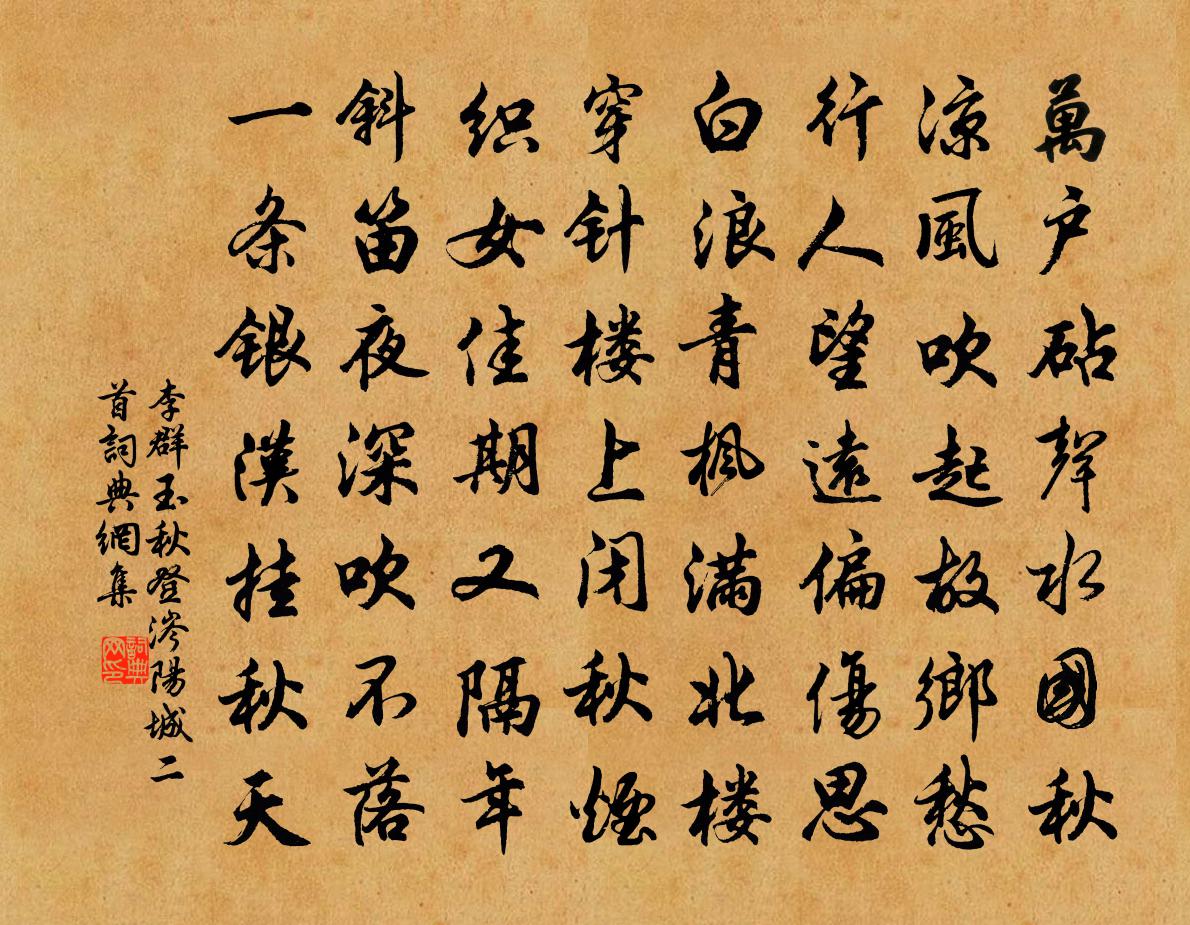 萬户砧聲水國秋
涼風吹起故鄉愁
行人望遠偏傷思
白浪青楓滿北楼
穿针楼上闭秋煙
织女佳期又隔年
斜笛夜深吹不落
一条银漢挂秋天
李群玉秋登涔陽城二
首詞典網集
詞典
网印